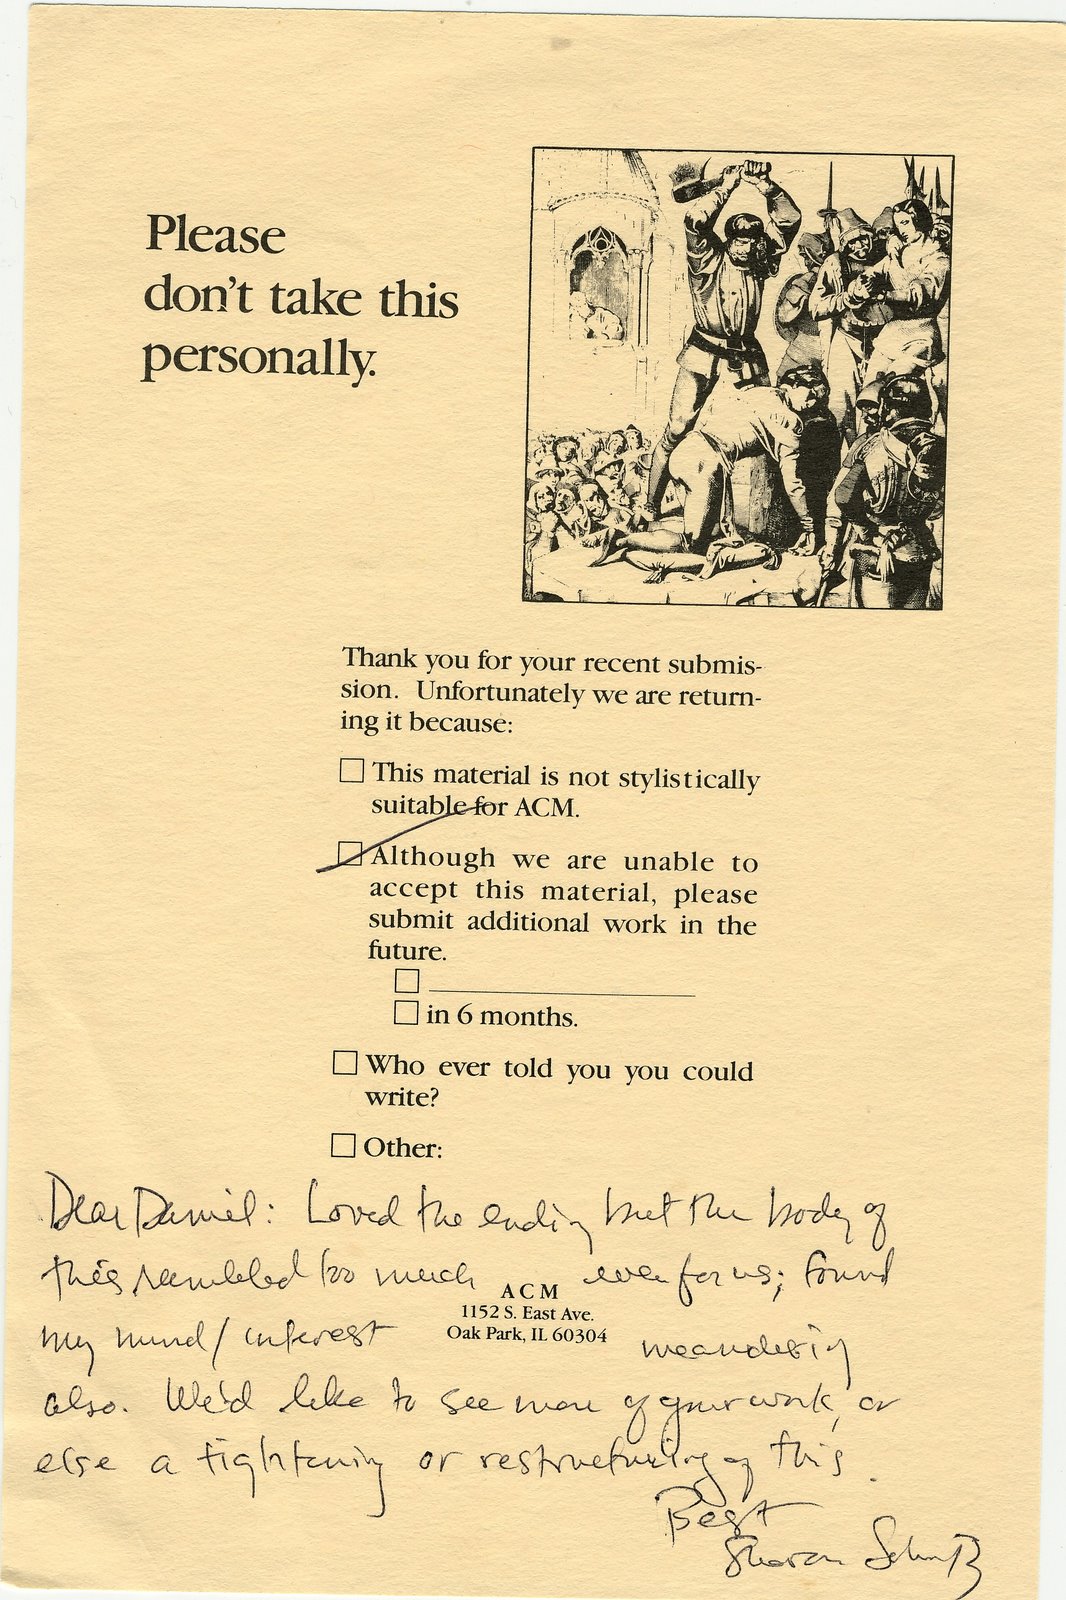 Please
don't take this
personally.
Thank you for your recent submis-
sion. Unfortunately we are return-
ing it because:
This material is not stylistically
suitable for ACM.
Although we are unable to
accept this material, please
submit additional work in the
future.
in 6 months.
Who ever told you you could
write?
Other:
Dear Daniel: Loved the ending but the body of
this rambled too much even for us; found
ACM
1152 S. East Ave.
Oak Park, IL 60304
my mind/interest meandering
also. We'd like to see more of your work, or
else a tightening or restructuring of this.
Best
Sharon